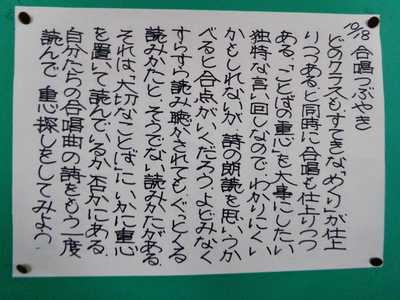 10/18 合唱つぶやき
どのクラスも、すてきな「めくり」が仕上
りつつある。と同時に合唱も仕上りつつ
ある。「ことばの重心」を大事にしたい。
独特な言い回しなので、わかりにくい
かもしれないが、詩の朗読を思いうか
べると合点がいくだろう。よどみなく
すらすら読み聴かされても、ぐっとくる
読みかたと、そうでない読みかたがある。
それは、「大切なことば」に、いかに重心
を置いて読んでいるか否かにある。
自分たちの合唱曲の詩をもう一度
読んで、重心探しをしてみよう。